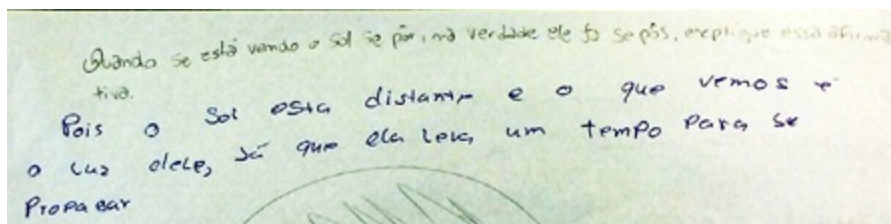 Quando se está vendo o sol se pôr, na verdade ele já se pôs, explique essa afirma
tiva.
Pois o Sol esta distante e o que vemos é
o luz dele, já que ela leva um tempo para se
Propagar